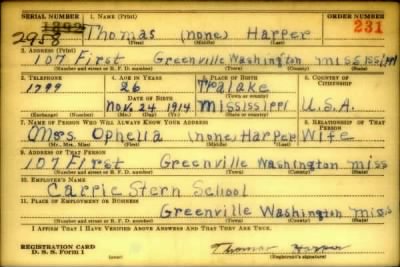 SERIAL NUMBER 1. NAME (Print) ORDER NUMBER
2958 Thomas (none) Harper 231
(First) (Middle) (Last)
2. ADDRESS (Print)
107 First Greenville Washington Mississippi
(Number and street or R. F. D. number) (Town) (County) (State)
3. TELEPHONE 4. AGE IN YEARS 5. PLACE OF BIRTH 6. COUNTRY OF CITIZENSHIP
1799 26 Tralake
DATE OF BIRTH
Nov. 24 1914 Mississippi U.S.A.
(Exchange) (Number) (Mo.) (Day) (Yr.) (State or country)
7. NAME OF PERSON WHO WILL ALWAYS KNOW YOUR ADDRESS 8. RELATIONSHIP OF THAT PERSON
Mrs Ophelia (none) Harper Wife
(Mr., Mrs., Miss) (First) (Middle) (Last)
9. ADDRESS OF THAT PERSON
107 First Greenville Washington miss
(Number and street or R. F. D. number) (Town) (County) (State)
10. EMPLOYER'S NAME
Carrie Stern School
11. PLACE OF EMPLOYMENT OR BUSINESS
Greenville Washington miss
(Number and street or R. F. D. number) (Town) (County) (State)
I AFFIRM THAT I HAVE VERIFIED ABOVE ANSWERS AND THAT THEY ARE TRUE.
REGISTRATION CARD
D. S. S. FORM 1
Thomas Harper
(Registrant's signature)